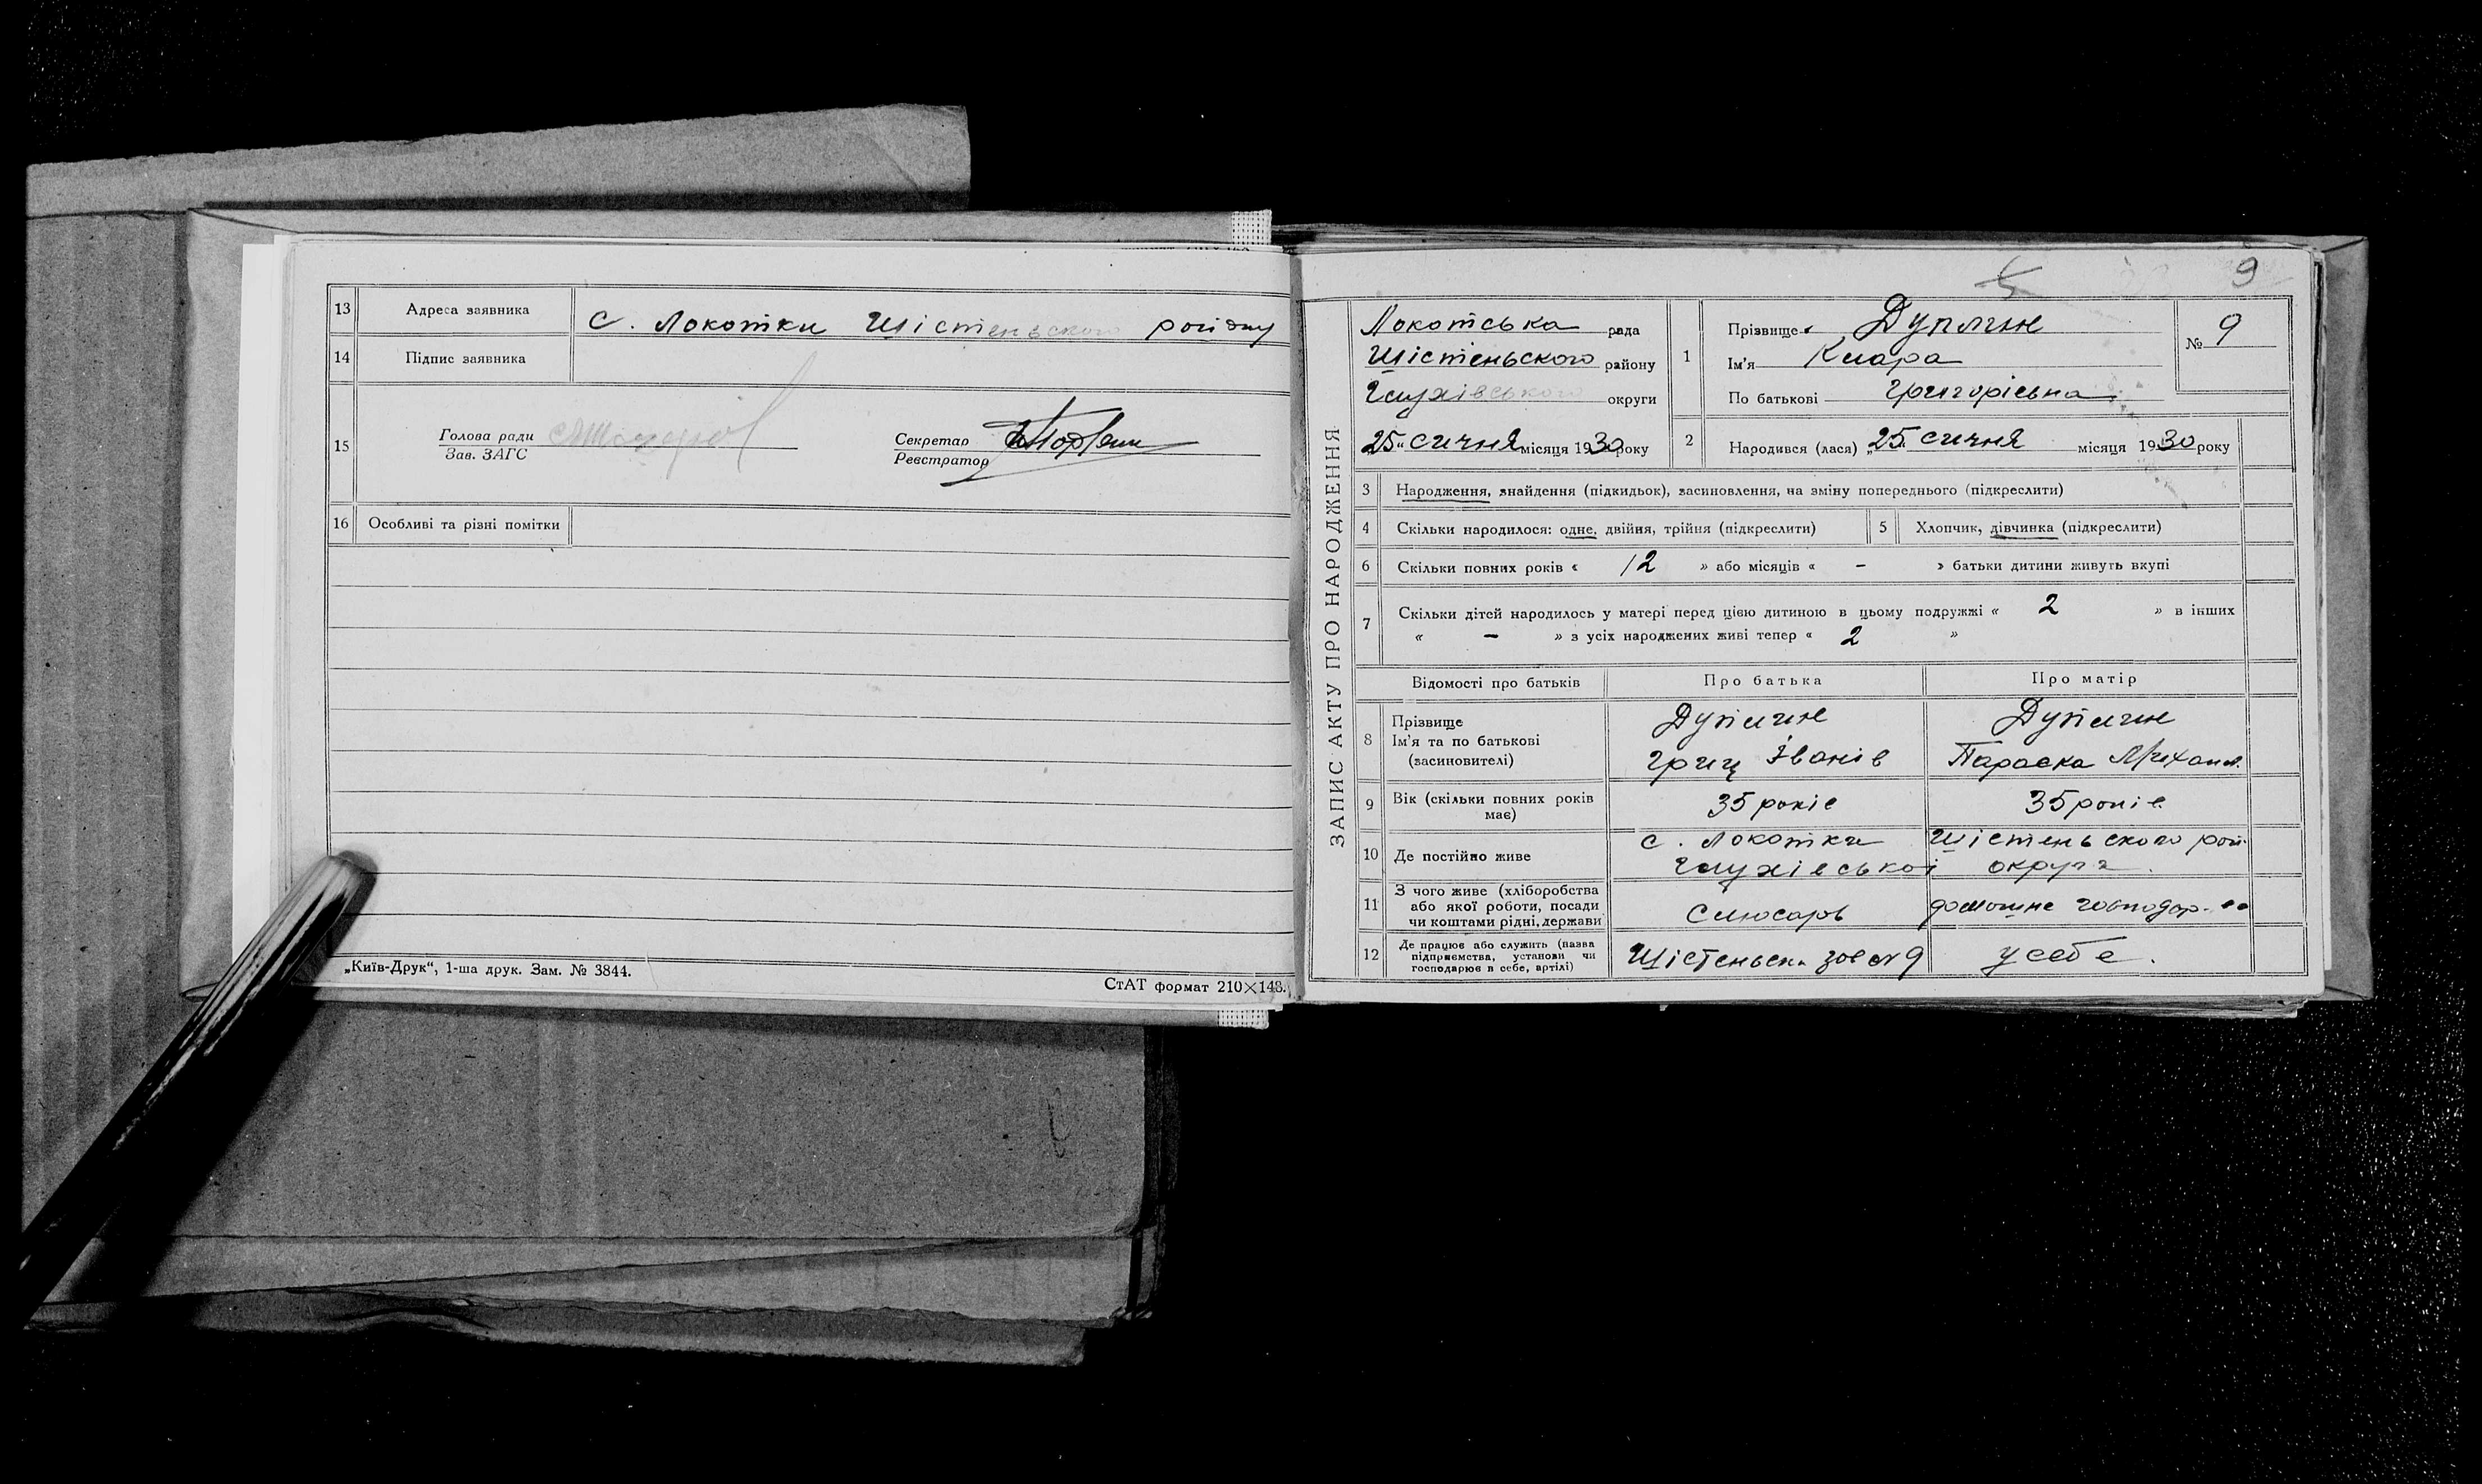 13 Адреса заявника с. Локотки Шістенського району
14 Підпис заявника
15 Голова ради
Зав. ЗАГС
Секретар
Реєстратор
16 Особливі та різні помітки
„Київ-Друк“, 1-ша друк. Зам. № 3844.
СтАТ формат 210×148.
9
ЗАПИС АКТУ ПРО НАРОДЖЕННЯ
Локотська рада
Шістеньського району
Глухівського округи
„25“ січня місяця 1930 року
1 Прізвище Дуплин
Ім'я Клара
По батькові Григорієвна
№ 9
2 Народився (лася) „25“ січня місяця 1930 року
3 Народження, знайдення (підкидьок), засиновлення, на зміну попереднього (підкреслити)
4 Скільки народилося: одне, двійня, трійня (підкреслити) 5 Хлопчик, дівчинка (підкреслити)
6 Скільки повних років « 12 » або місяців « - » батьки дитини живуть вкупі
7 Скільки дітей народилось у матері перед цією дитиною в цьому подружжі « 2 » в інших
« - » з усіх народжених живі тепер « 2 »
Відомості про батьків Про батька Про матір
8 Прізвище Дуплин Дуплин
Ім'я та по батькові Гриц Іванів Параска Михайл.
(засиновителі)
9 Вік (скільки повних років має) 35 років 35 років
10 Де постійно живе с. Локотки Шістеньского рай.
Глухівської округи.
11 З чого живе (хліборобства
або якої роботи, посади
чи коштами рідні, держави Слюсарь домашне господар.
12 Де працює або служить (назва
підприємства, установи чи
господарює в себе, артілі) Шістеньськ. у себе.